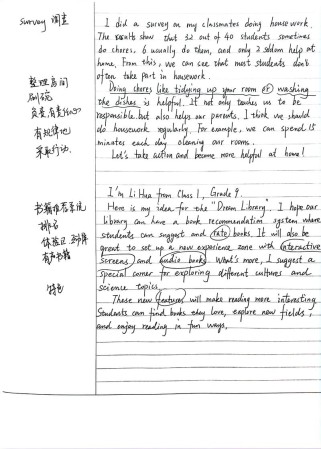 survey 调查
I did a survey on my classmates doing housework.
The results show that 32 out of 40 students sometimes
do chores, 6 usually do them, and only 2 seldom help at
home. From this, we can see that most students don't
often take part in housework.
整理房间
刷碗
负责,有责任心
有规律地
采取行动
Doing chores like tidying up your room or washing
the dishes is helpful. It not only teaches us to be
responsible but also helps our parents. I think we should
do housework regularly. For example, we can spend 15
minutes each day cleaning our rooms.
Let's take action and become more helpful at home!
I'm Li Hua from Class 1, Grade 9.
Here is my idea for the "Dream Library". I hope our
library can have a book recommendation system where
students can suggest and rate books. It will also be
great to set up a new experience zone with interactive
screens and audio books. What's more, I suggest a
special corner for exploring different cultures and
science topics.
These new features will make reading more interesting.
Students can find books they love, explore new fields,
and enjoy reading in fun ways.
书籍推荐系统
有声书籍
特色